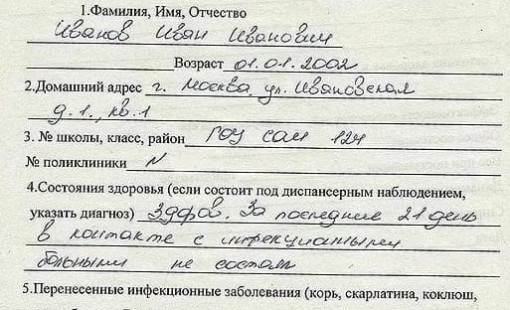 1.Фамилия, Имя, Отчество
Иванов Иван Иванович
Возраст 01.01.2002
2.Домашний адрес г. Москва, ул. Ивановская
д.1., кв.1
3. № школы, класс, район ГОУ сош 124
№ поликлиники N
4.Состояния здоровья (если состоит под диспансерным наблюдением,
указать диагноз) Здоров. За последние 21 день
в контакте с инфекционными
больными не состоял
5.Перенесенные инфекционные заболевания (корь, скарлатина, коклюш,